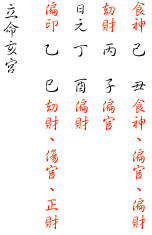 食神 己 丑 食神、偏官、偏財
劫財 丙 子 偏官
日元 丁 酉 偏財
偏印 乙 巳 劫財、傷官、正財
立命亥宮